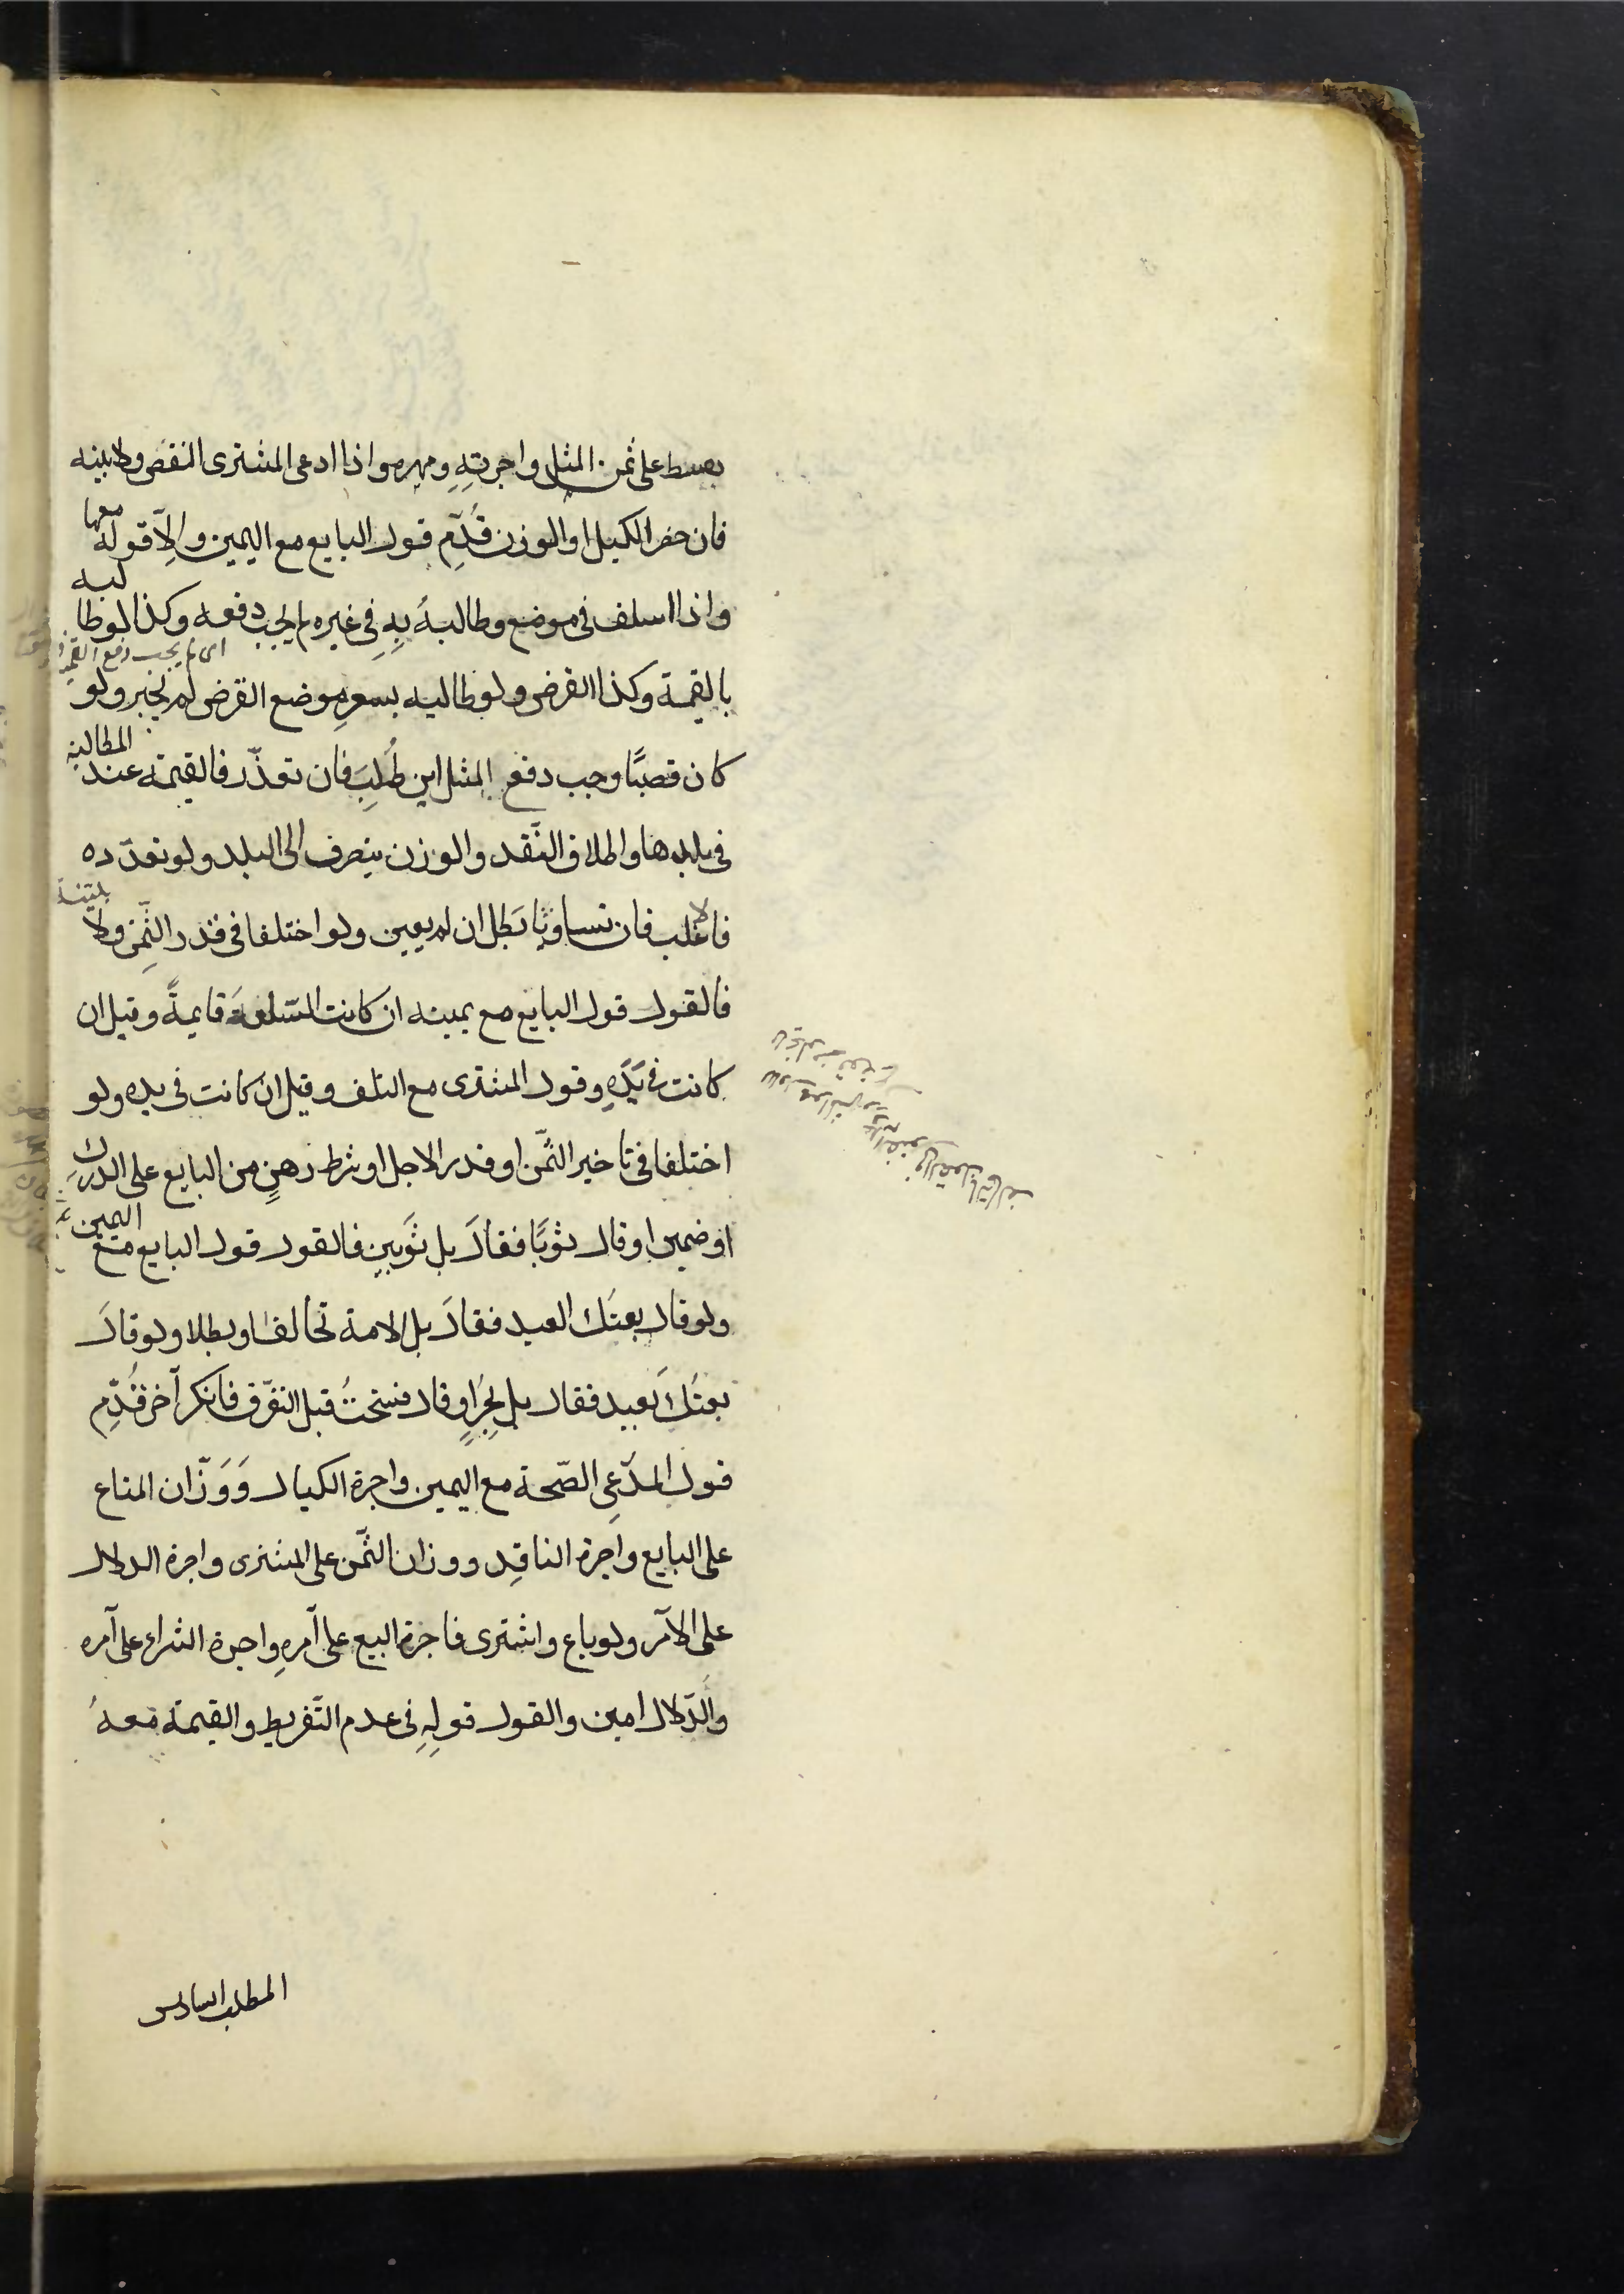 بقسط على ثمن المثل واجرته ومهره واذا ادعى المشترى النقص ولا بينه
فان حضر الكيل او الوزن قُدِّم قول البايع مع اليمين والّا قوله معها
واذا اسلف فى موضع وطالبه بِهِ فِى غيره لم يجب دفعه وكذا لو طالبه
اى لم يجب دفع القيمة
بالقيمة وكذا القرض ولو طالبه بسعرِ موضع القرض لم يجبر ولو
كان قصبًا وجب دفع المثل اين طُلِبَ فان تعذّر فالقيمة عند المطالبة
فى بلدها واطلاق النّقد والوزن ينصرف الى البلد ولو تعدّده
فالاغلب فان تساويا بَطل ان لم يعين ولو اختلفا فى قدر الثّمنِ ولا بيّنة
فالقول قول البايع مع يمينه ان كانت السّلعةَ قايمةً وقيل ان
كانت فى يَدِهِ وقول المشترى مع التلف وقيل ان كانت فى يده ولو
اختلفا فى تاخير الثّمن او قدر الاجل او شرط رهنٍ من البايع على الدرك
او ضمين او قال ثوبًا فقالَ بل ثوَبين فالقول قول البايع مع اليمين
ولو قال بعتَك العبد فقالَ بل الامة تحالفا وبطلا ولو قالَ
بعتُكَ بعبد فقال بل بِحُرٍّ او قال فسختُ قبل التفرّق فانكر آخر قُدِّم
قول المدّعىِ الصّحة مع اليمين واجرة الكيال وَوَزّان المتاع
على البايع واجرة الناقِد ووزان الثّمن على المشترى واجرة الدلال
على الآمر ولو باع واشترى فاجرة البيع على آمرهِ واجرة الشراء على آمره
والدّلال امين والقول قولِهِ فِى عدم التّفريط والقيمة معهُ
المطلب السادس